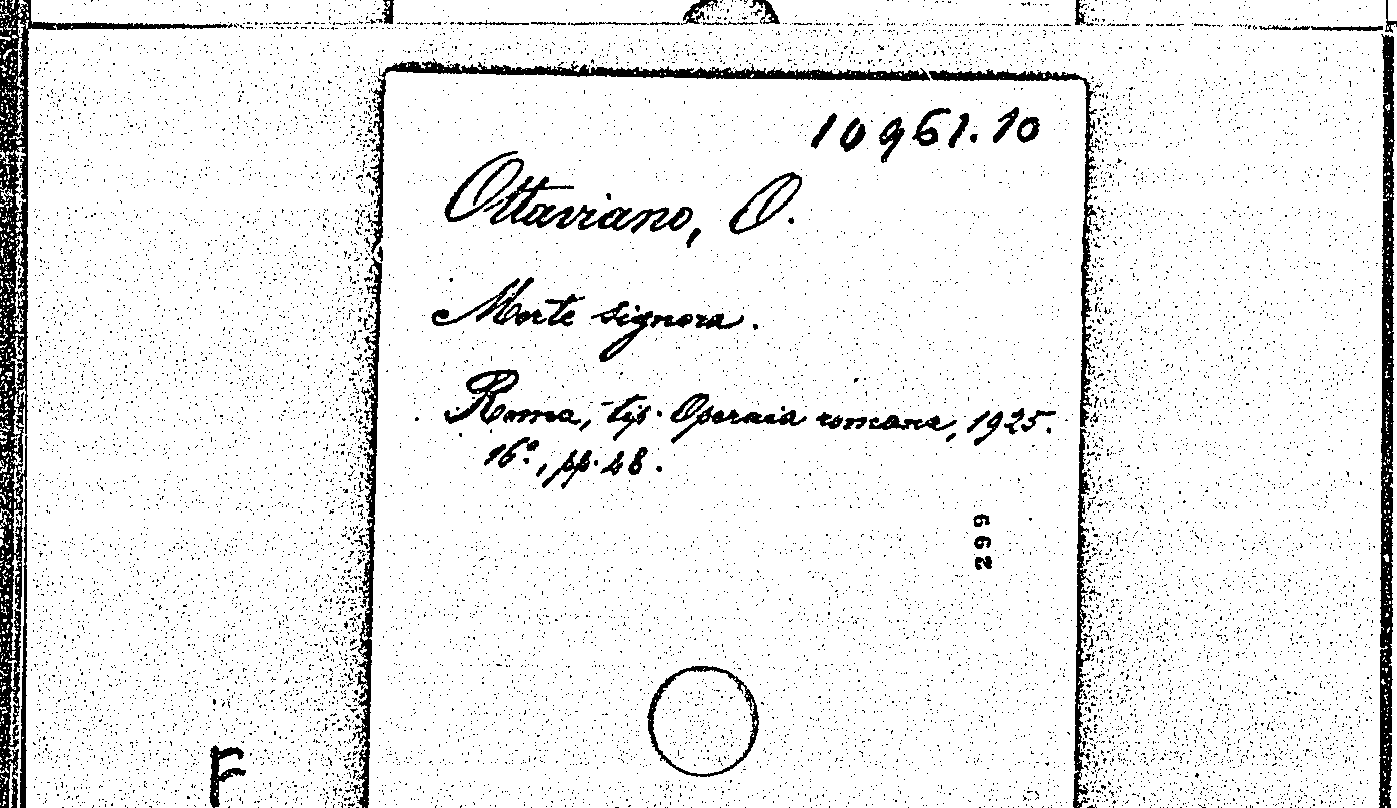 10961.10
Ottaviano, O.
Morte signora.
Roma, tip. Operaia romana, 1925.
16°, pp. 48.
299
F